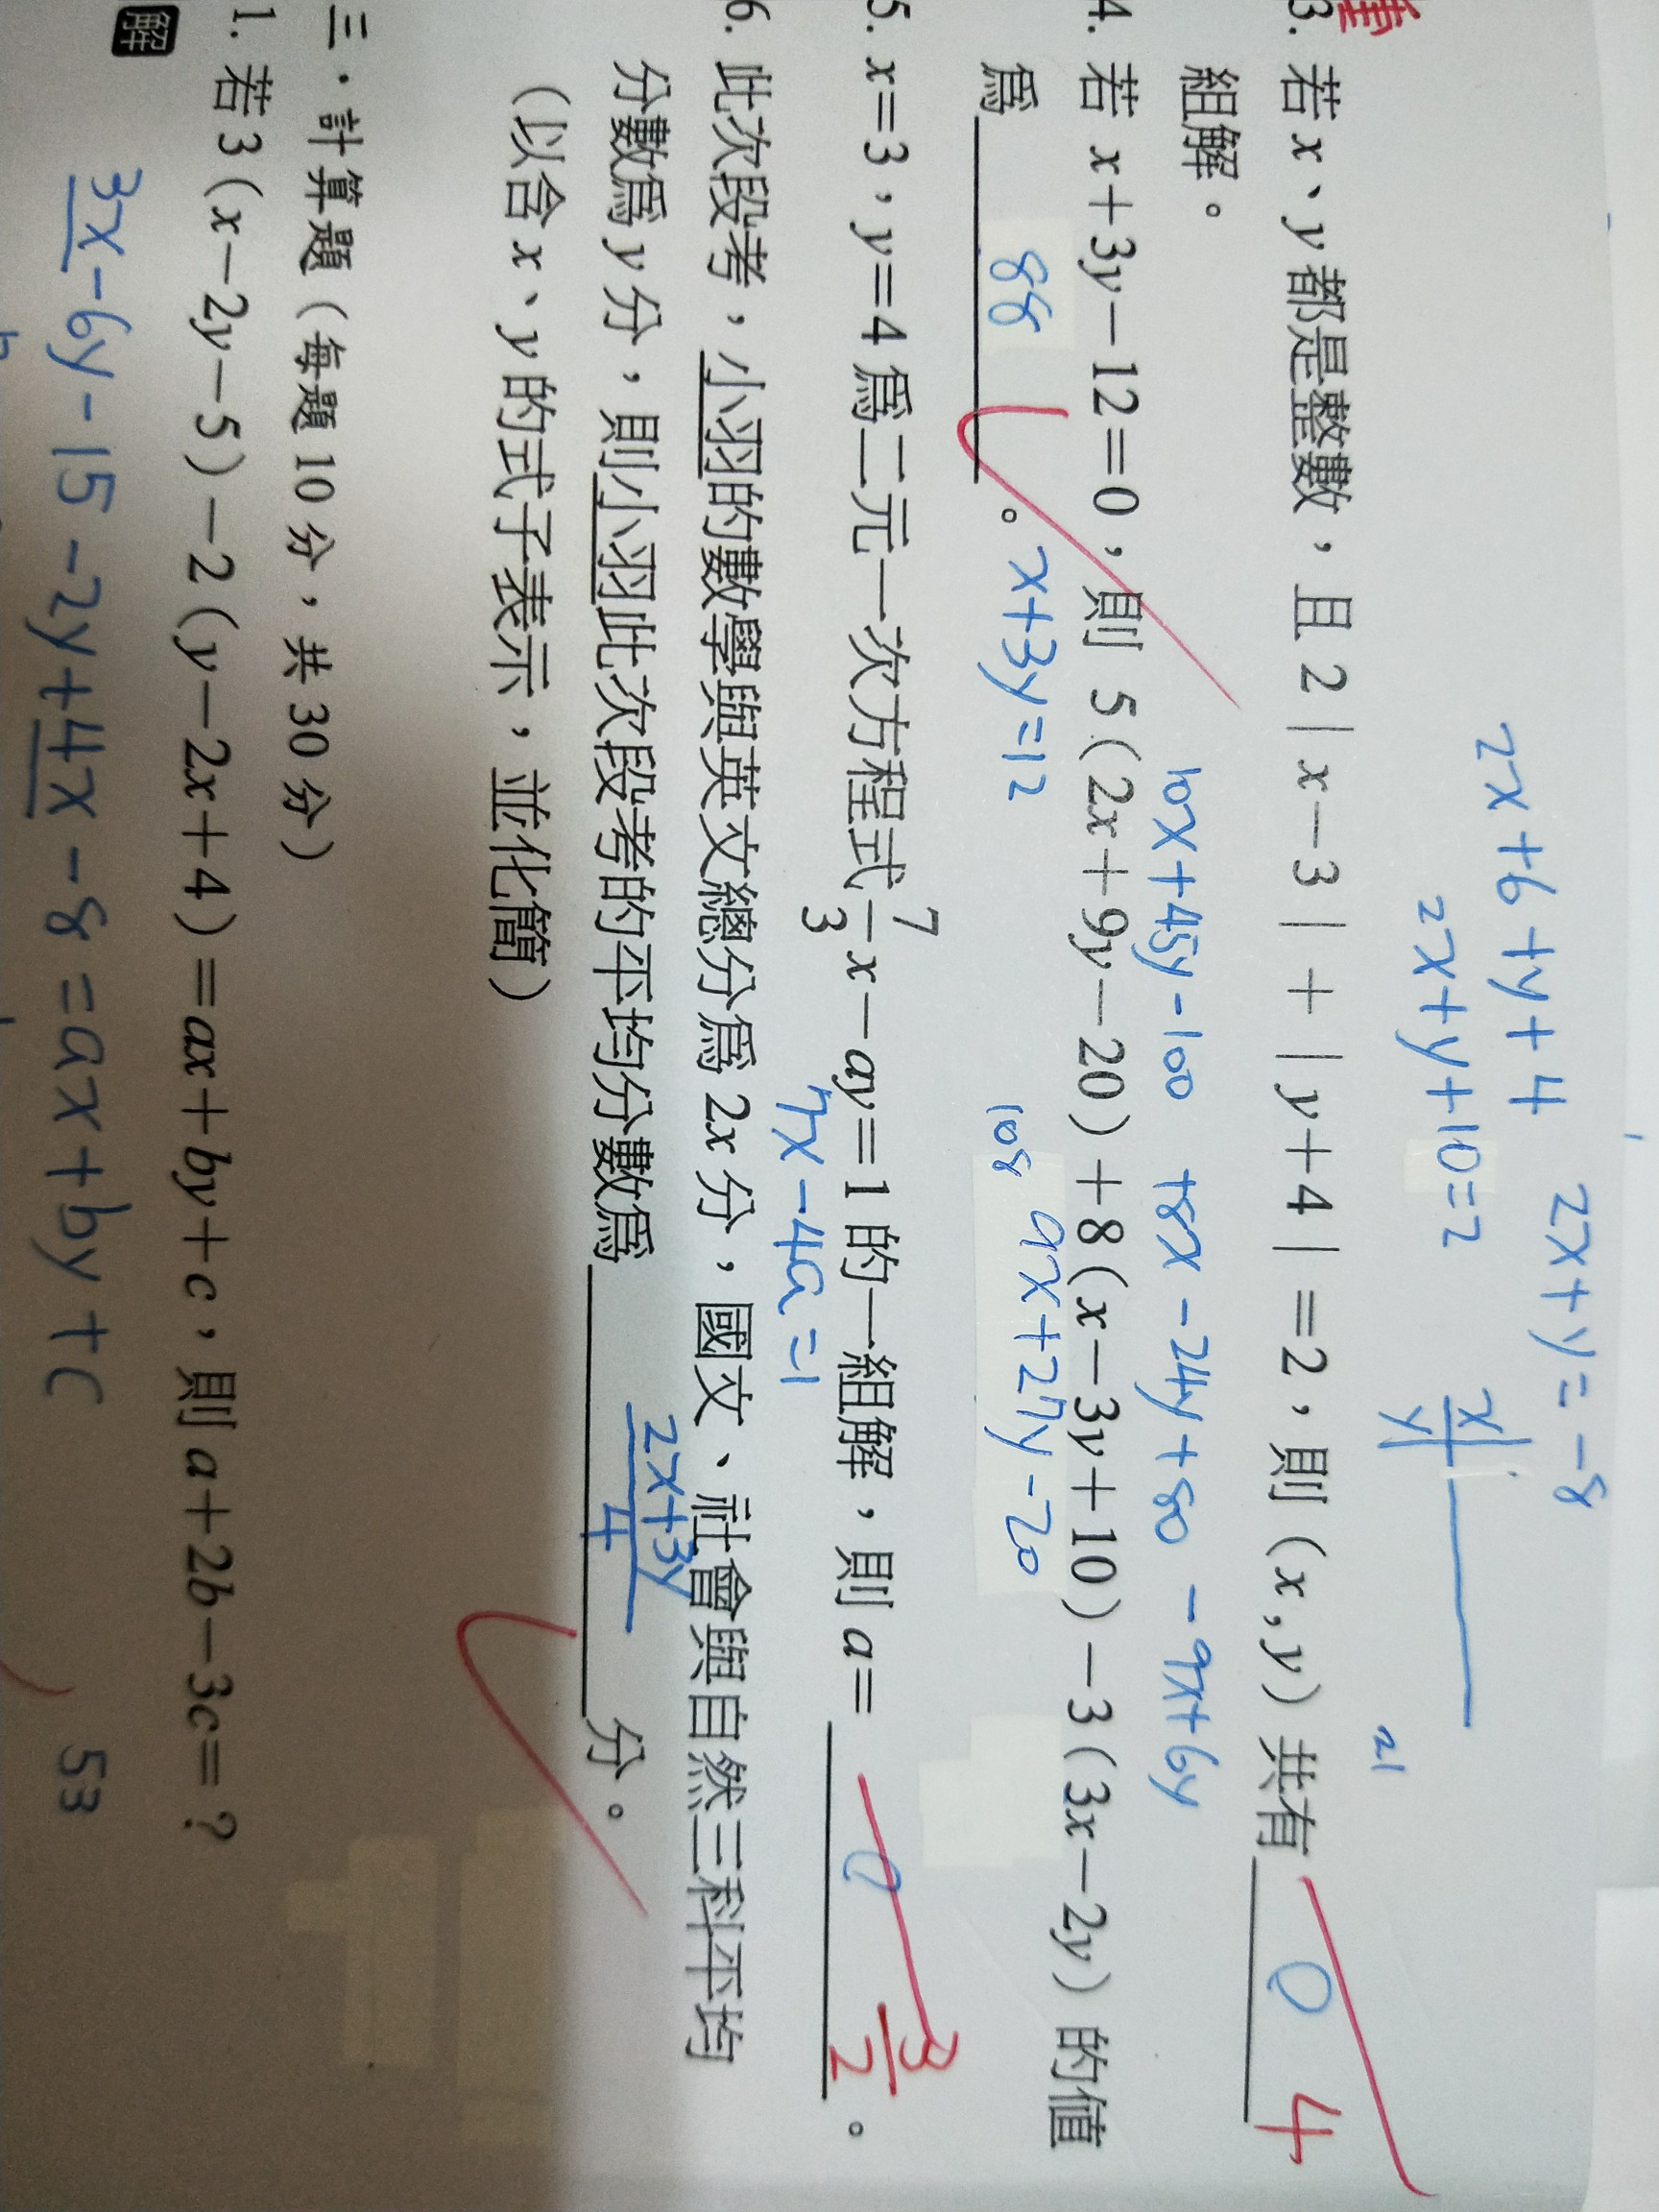 2x+y=-8
2x+6+y+4
2x+y+10=2
x
y
21
3. 若 x、y 都是整數，且 2|x-3|+|y+4|=2，則 (x,y) 共有 0 4
組解。
10x+45y-100 +8x-24y+80 -9x+6y
4. 若 x+3y-12=0，則 5(2x+9y-20)+8(x-3y+10)-3(3x-2y) 的值
爲 88 。 x+3y=12 108 9x+27y-20
5. x=3，y=4 爲二元一次方程式 7/3 x-ay=1 的一組解，則 a= 0 3/2 。
7x-4a=1
6. 此次段考，小羽的數學與英文總分爲 2x 分，國文、社會與自然三科平均
分數爲 y 分，則小羽此次段考的平均分數爲 2x+3y/4 分。
(以含 x、y 的式子表示，並化簡)
三．計算題（每題 10 分，共 30 分）
1. 若 3(x-2y-5)-2(y-2x+4)=ax+by+c，則 a+2b-3c=？
解
3x-6y-15-2y+4x-8=ax+by+c 53